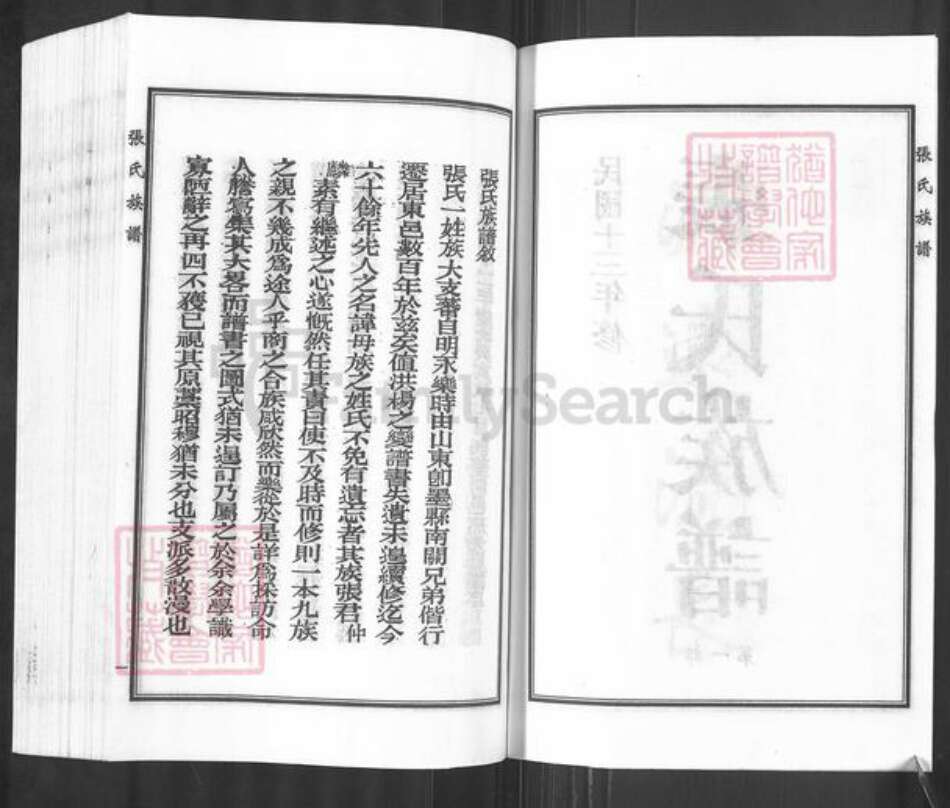 張氏族譜
民國十三年修
張氏族譜
第一部
張氏族譜敘
張氏一姓族大支蕃自明永樂時由山東卽墨縣南關兄弟偕行
遷居東邑數百年於茲矣值洪楊之變譜書失遺未遑續修迄今
六十餘年先人之名諱母族之姓氏不免有遺忘者其族張君仲
素有繼述之心遂慨然任其責曰使不及時而修則一本九族
之親不幾成爲途人乎商之合族咸欣然而樂從於是詳爲採訪命
人謄寫集其大畧而譜書之圖式猶未邉訂乃屬之於余余學識
寡陋辭之再四不獲已視其原藁昭穆猶未分也支派多散漫也
張氏族譜
一
FamilySearch